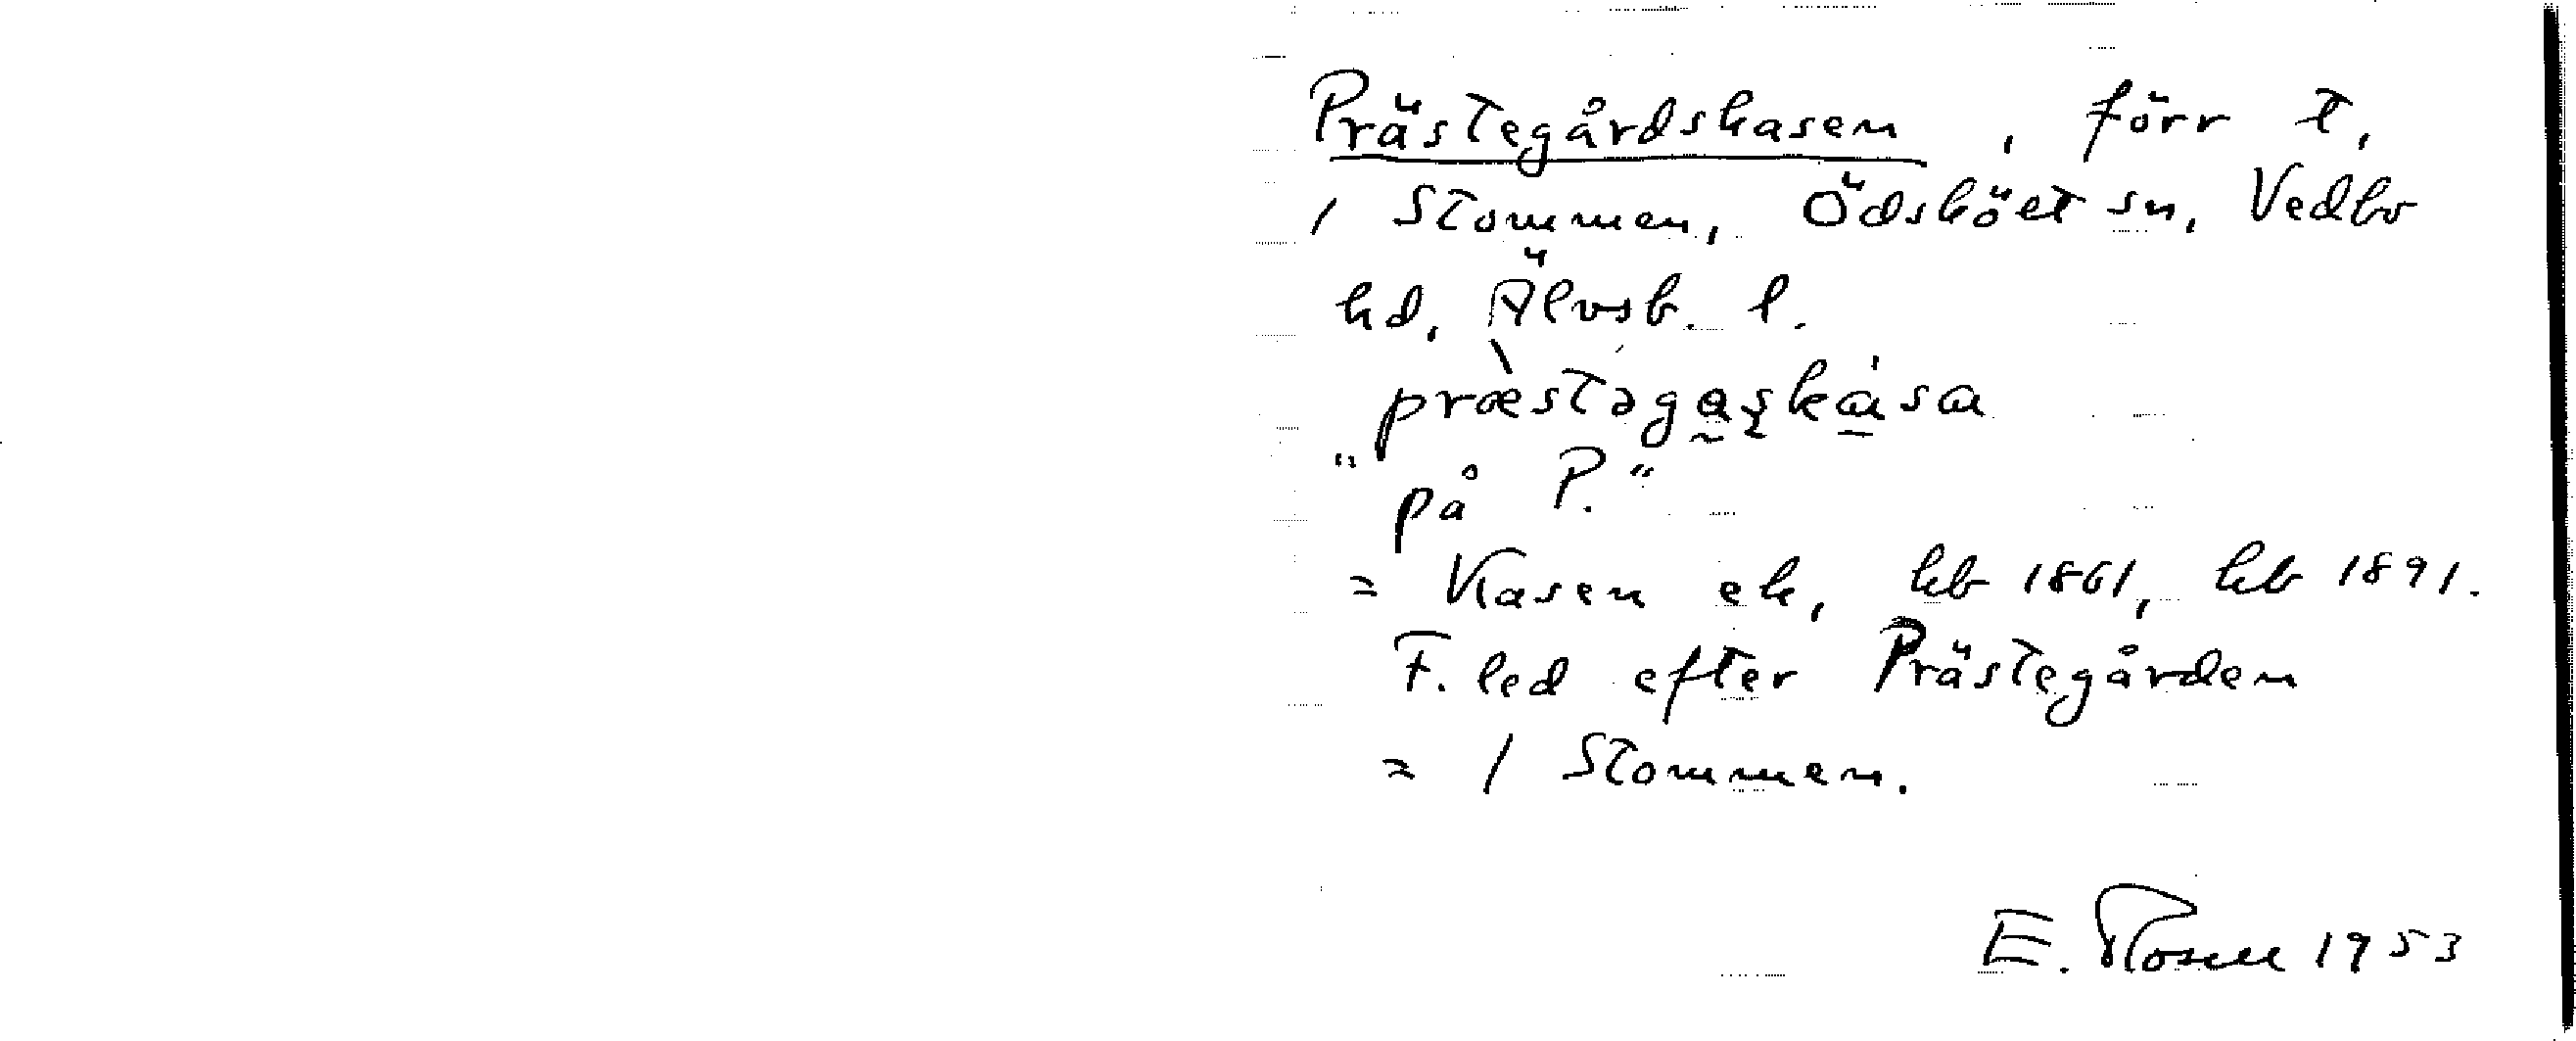 Prästegårdskasen, förr t.
1 Stommen, Ödsköet sn, Vedbo
hd, Älvsb. l.
"på P."
= Kasen ek, hb 1861, hb 1891.
F. led efter Prästegården
= 1 Stommen.
E. Rosell 1953